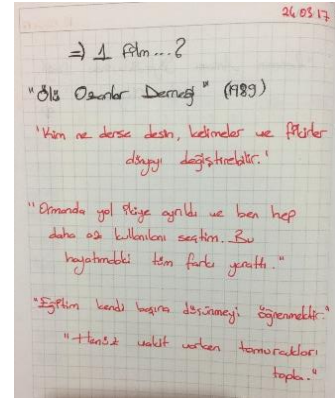 26.03.17
=) 1 film...?
"Ölü Ozanlar Derneği" (1989)
"Kim ne derse desin, kelimeler ve fikirler
dünyayı değiştirebilir."
"Ormanda yol ikiye ayrıldı ve ben hep
daha az kullanılanı seçtim. Bu
hayatımdaki tüm farkı yarattı."
"Eğitim kendi başına düşünmeyi öğrenmektir."
"Henüz vakit varken tomurcukları
topla."